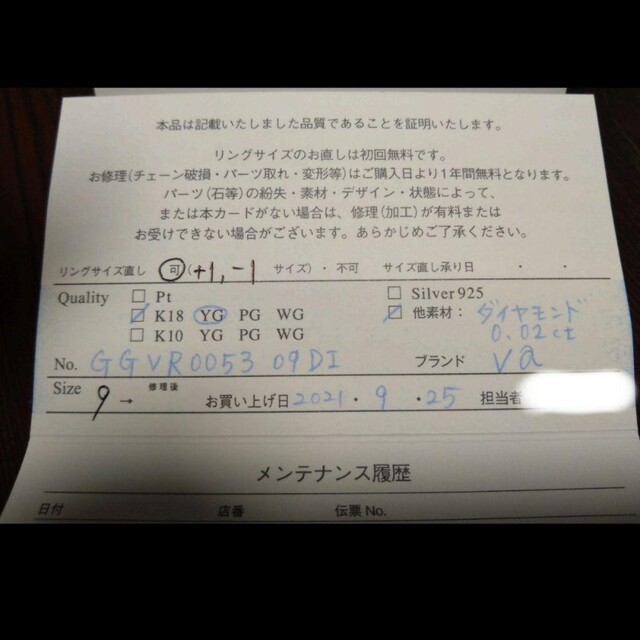 本品は記載いたしました品質であることを証明いたします。
リングサイズのお直しは初回無料です。
お修理(チェーン破損・パーツ取れ・変形等)はご購入日より1年間無料となります。
パーツ(石等)の紛失・素材・デザイン・状態によって、
または本カードがない場合は、修理(加工)が有料または
お受けできない場合がございます。あらかじめご了承ください。
リングサイズ直し 可(+1,-1 サイズ)・不可 サイズ直し承り日 ・ ・
Quality □ Pt □ Silver925
☑ K18 YG PG WG ☑ 他素材: ダイヤモンド
□ K10 YG PG WG 0.02ct
No. GGVR0053 09DI ブランド va
Size 9 → 修理後 お買い上げ日 2021・9・25 担当者
メンテナンス履歴
日付 店番 伝票 No.